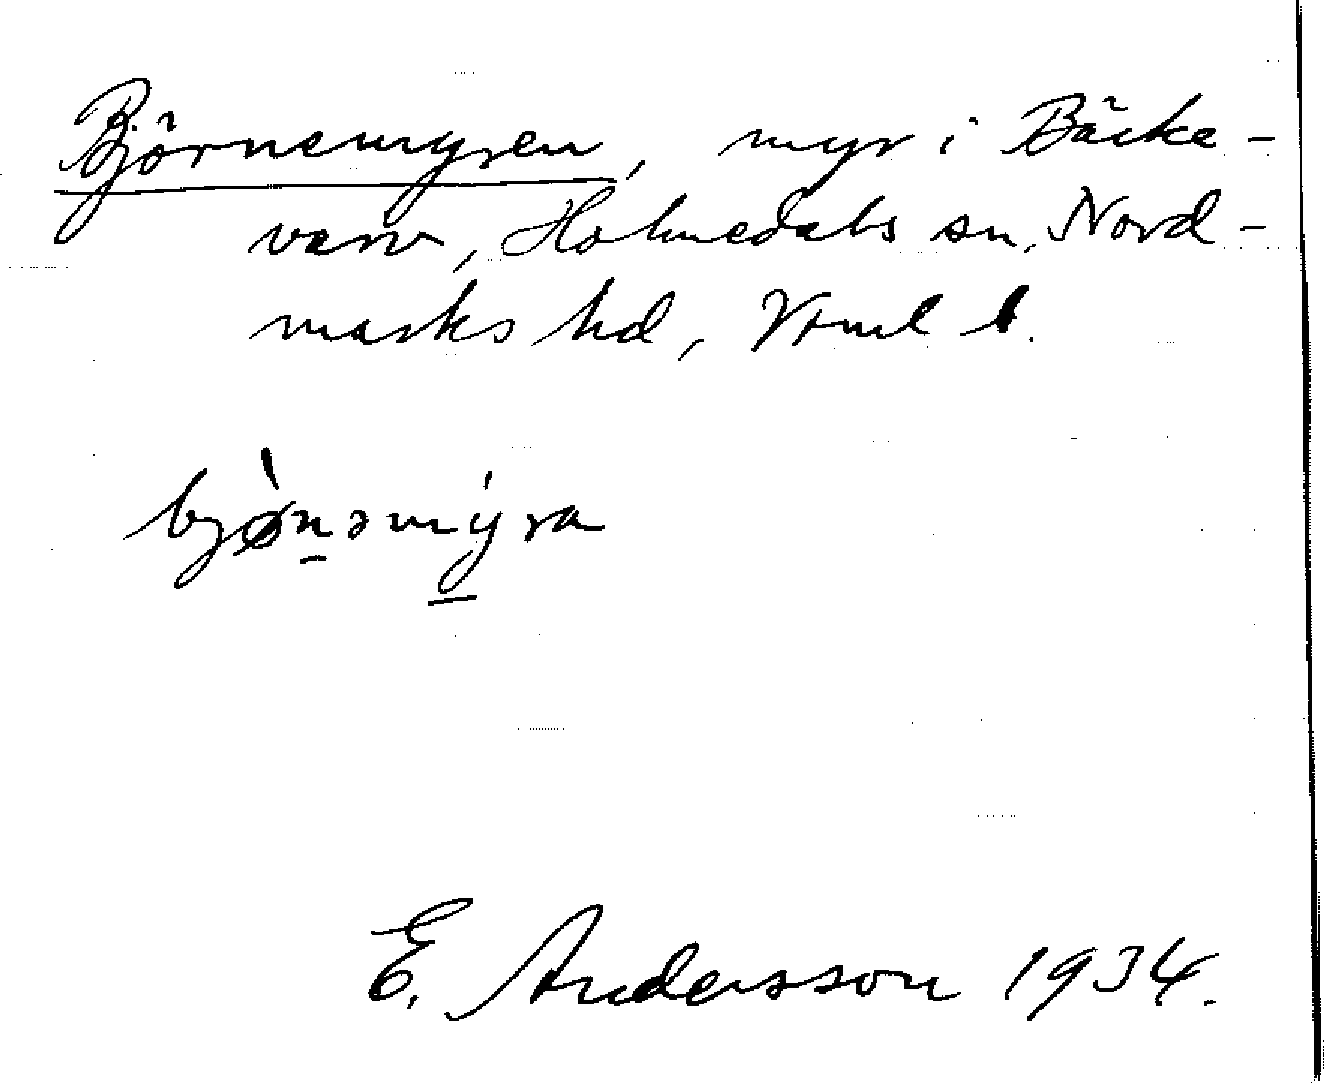 Björnemyren, myr i Bäcke-
varv, Holmedals sn, Nord-
marks hd, Vrml l.
bjø̀nəmýra
E. Andersson 1934.